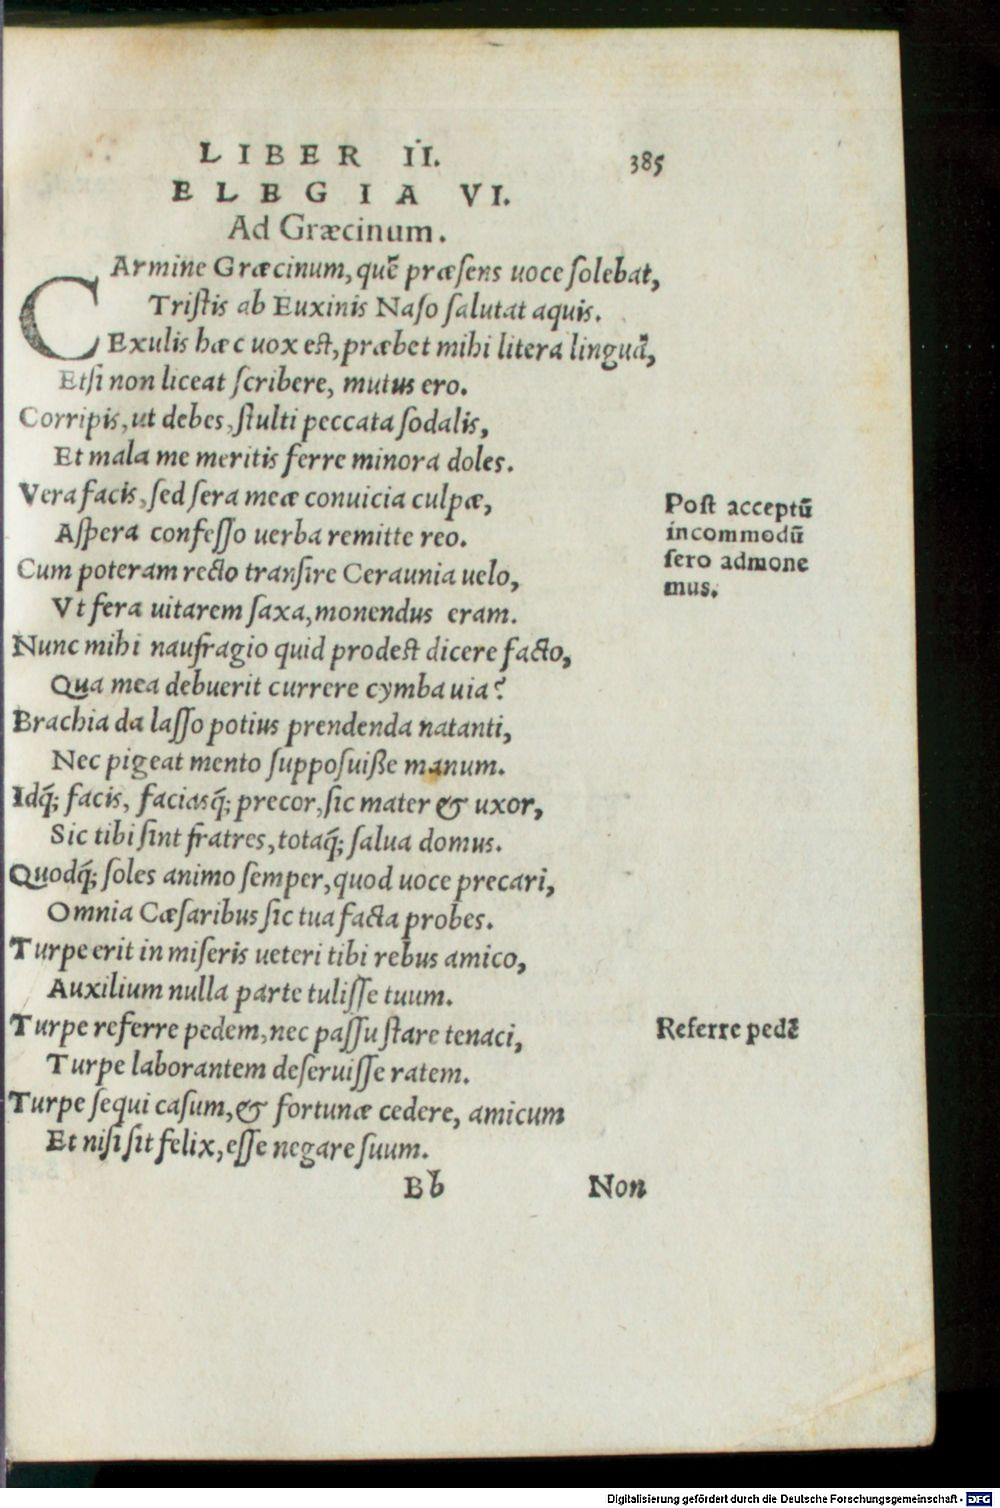 LIBER II. 385
ELEGIA VI.
Ad Græcinum.
CArmine Græcinum, quẽ præſens uoce ſolebat,
Triſtis ab Euxinis Naſo ſalutat aquis.
Exulis hæc uox eſt, præbet mihi litera linguã,
Etſi non liceat ſcribere, mutus ero.
Corripis, ut debes, ſtulti peccata ſodalis,
Et mala me meritis ferre minora doles.
Vera facis, ſed ſera meæ conuicia culpæ,
Aſpera confeſſo uerba remitte reo.
Cum poteram recto tranſire Ceraunia uelo,
Vt fera uitarem ſaxa, monendus eram.
Nunc mihi naufragio quid prodeſt dicere facto,
Qua mea debuerit currere cymba uia?
Brachia da laſſo potius prendenda natanti,
Nec pigeat mento ſuppoſuiße manum.
Idq́; facis, faciasq́; precor, ſic mater & uxor,
Sic tibi ſint fratres, totaq́; ſalua domus.
Quodq́; ſoles animo ſemper, quod uoce precari,
Omnia Cæſaribus ſic tua facta probes.
Turpe erit in miſeris ueteri tibi rebus amico,
Auxilium nulla parte tuliſſe tuum.
Turpe referre pedem, nec paſſu ſtare tenaci,
Turpe laborantem deſeruiſſe ratem.
Turpe ſequi caſum, & fortunæ cedere, amicum
Et niſi ſit felix, eſſe negare ſuum.
Bb Non
Poſt acceptũ
incommodũ
ſero admone
mus.
Referre pedẽ
Digitalisierung gefördert durch die Deutsche Forschungsgemeinschaft - DFG